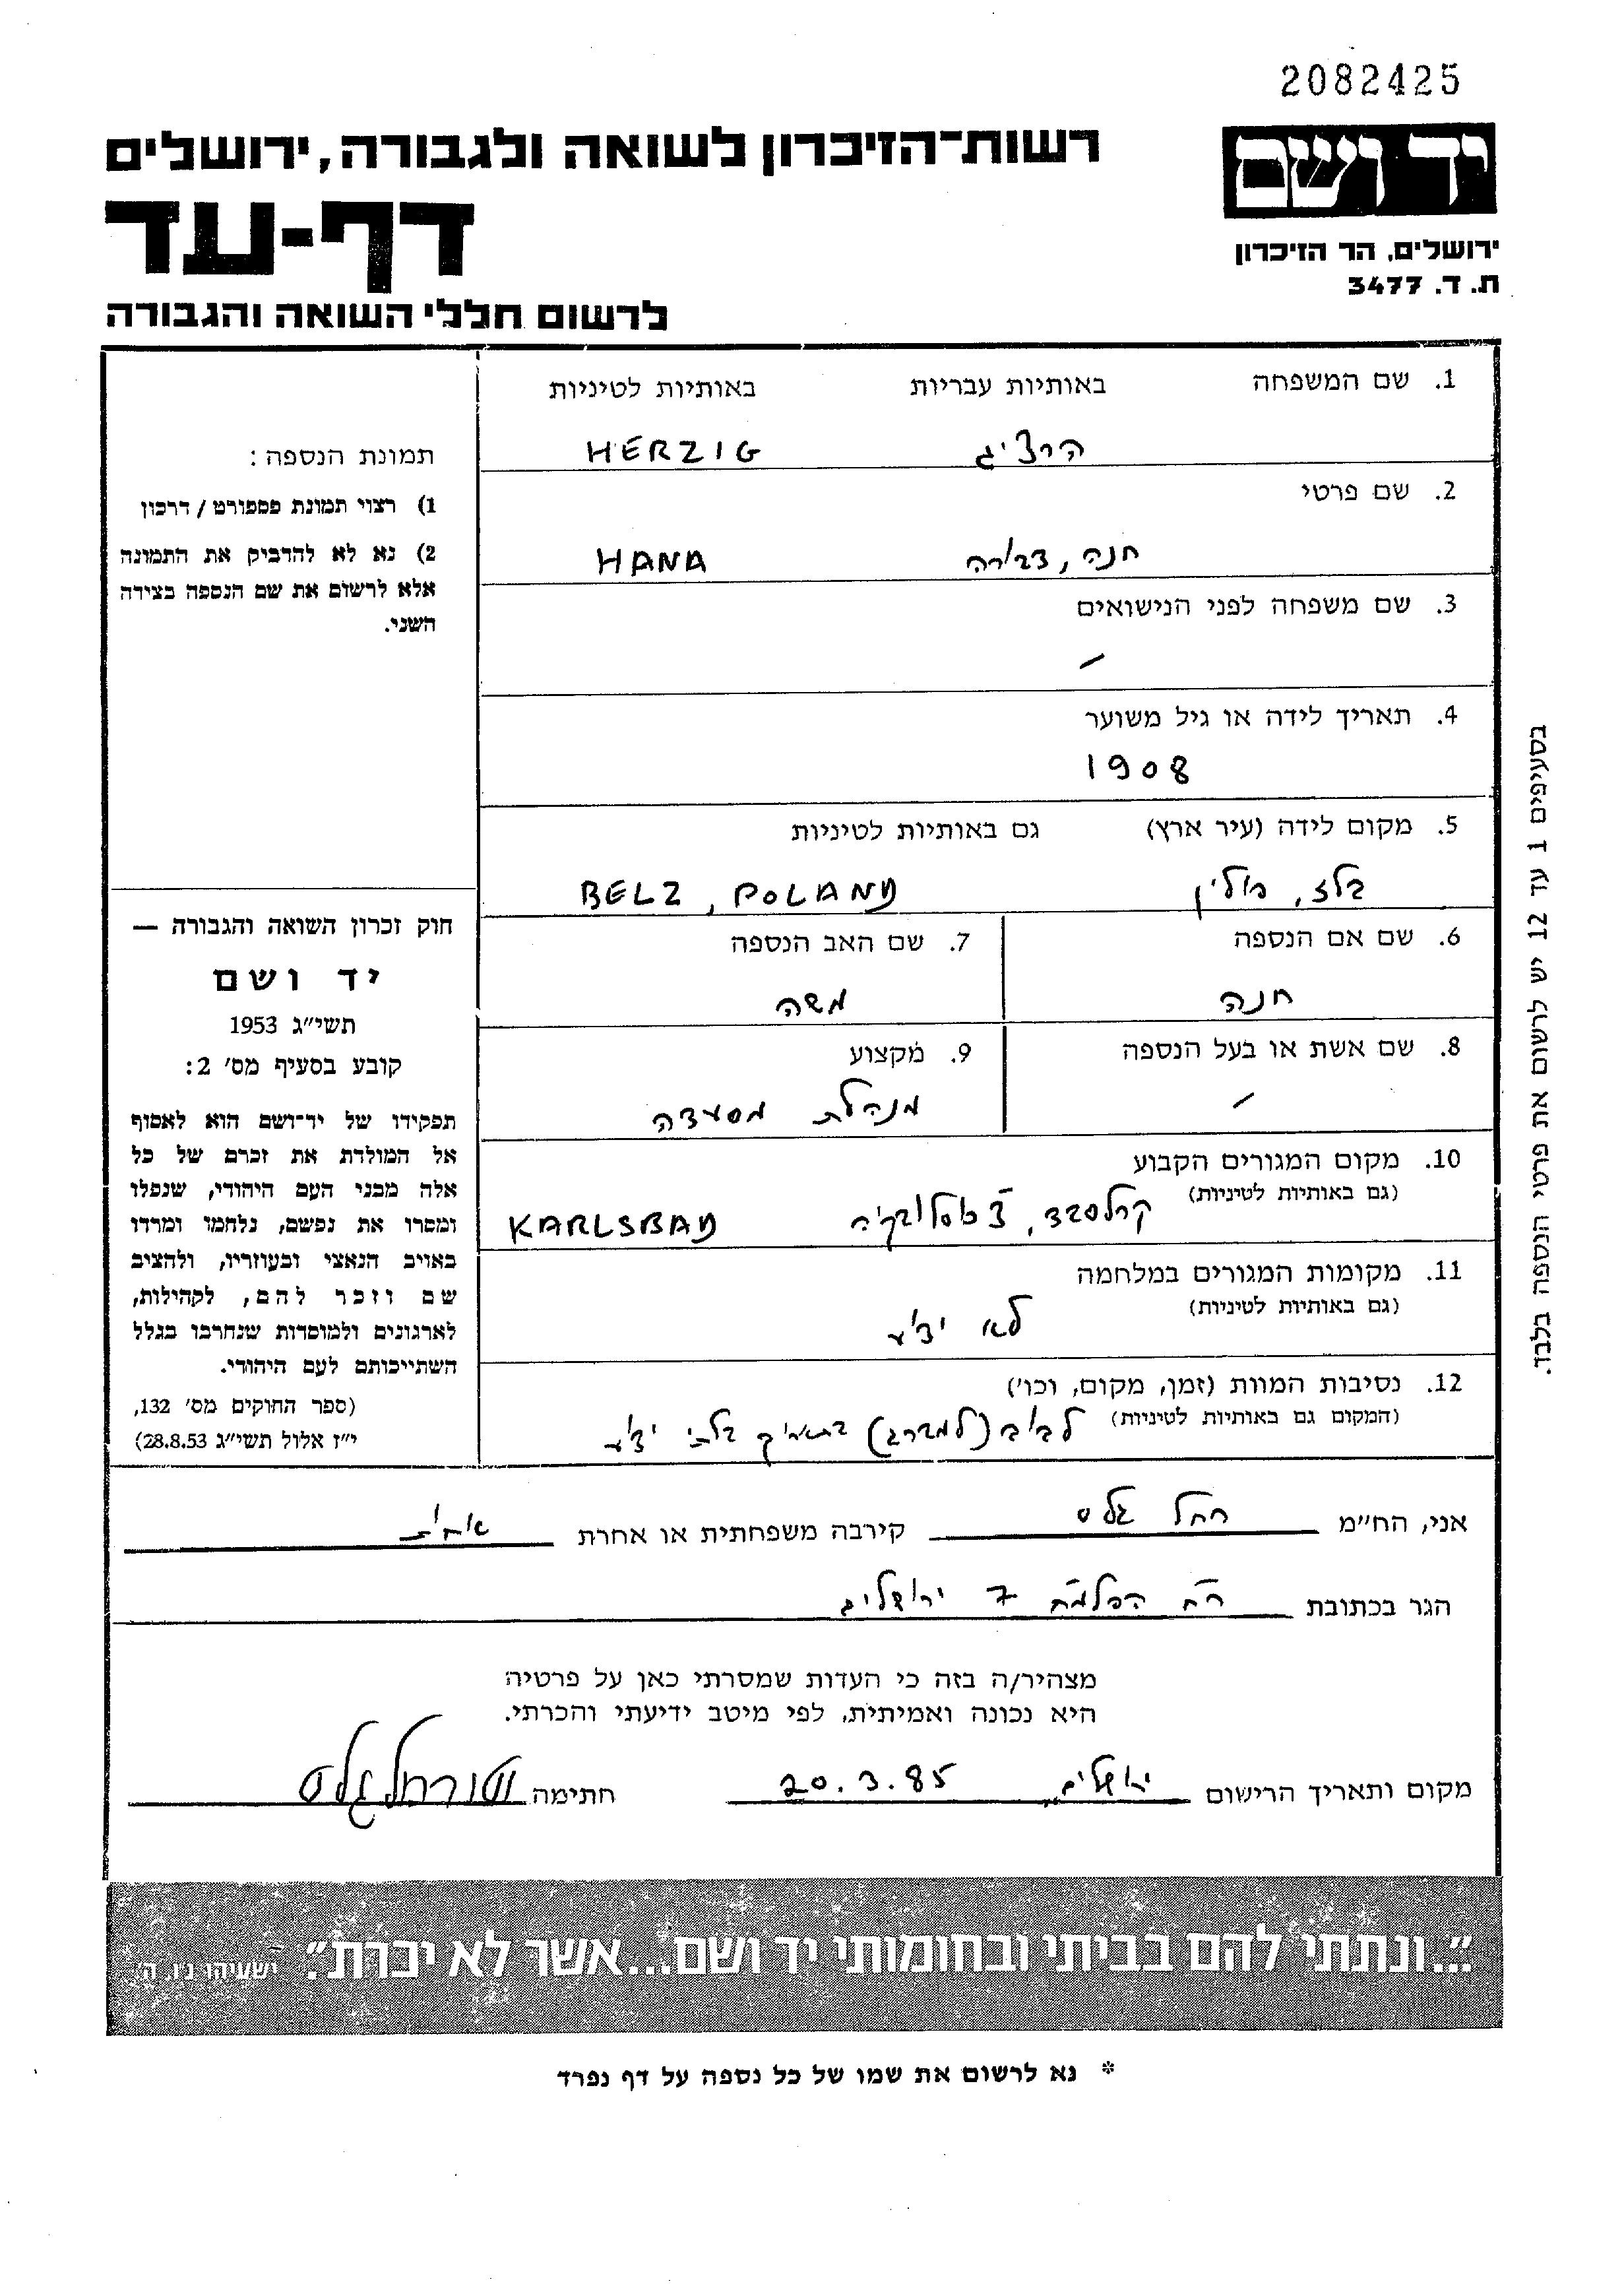 2082425
יד ושם
רשות־הזיכרון לשואה ולגבורה, ירושלים
דף-עד
ירושלים, הר הזיכרון
ת. ד. 3477
לרשום חללי השואה והגבורה
1. שם המשפחה באותיות עבריות באותיות לטיניות
הרציג HERZIG
2. שם פרטי
חנה, דבורה HANA
3. שם משפחה לפני הנישואים
–
4. תאריך לידה או גיל משוער
1908
5. מקום לידה (עיר ארץ) גם באותיות לטיניות
בלז, פולין BELZ, POLAND
6. שם אם הנספה 7. שם האב הנספה
חנה משה
8. שם אשת או בעל הנספה 9. מקצוע
– מנהלת מסעדה
10. מקום המגורים הקבוע
(גם באותיות לטיניות)
קרלסבד, KARLSBAD
11. מקומות המגורים במלחמה
(גם באותיות לטיניות)
לא ידוע
12. נסיבות המוות (זמן, מקום, וכו')
(המקום גם באותיות לטיניות)
לבוב (למברג) בתאריך בלתי ידוע
תמונת הנספה :
1) רצוי תמונת פספורט / דרכון
2) נא לא להדביק את התמונה
אלא לרשום את שם הנספה בצידה
השני.
חוק זכרון השואה והגבורה —
יד ושם
תשי״ג 1953
קובע בסעיף מס׳ 2:
תפקידו של יד־ושם הוא לאסוף
אל המולדת את זכרם של כל
אלה מבני העם היהודי, שנפלו
ומסרו את נפשם, נלחמו ומרדו
באויב הנאצי ובעוזריו, ולהציב
שם וזכר להם, לקהילות,
לארגונים ולמוסדות שנחרבו בגלל
השתייכותם לעם היהודי.
(ספר החוקים מס׳ 132,
י״ז אלול תשי״ג 28.8.53)
בסעיפים 1 עד 12 יש לרשום את פרטי הנספה בלבד.
אני, הח״מ רחל גלס קירבה משפחתית או אחרת אחות
הגר בכתובת רח' הפלמ"ח 7 ירושלים
מצהיר/ה בזה כי העדות שמסרתי כאן על פרטיה
היא נכונה ואמיתית, לפי מיטב ידיעתי והכרתי.
מקום ותאריך הרישום ירושלים 20.3.85 חתימה רחל גלס
״...ונתתי להם בביתי ובחומותי יד ושם...אשר לא יכרת״. ישעיהו נ״ו, ה׳
* נא לרשום את שמו של כל נספה על דף נפרד